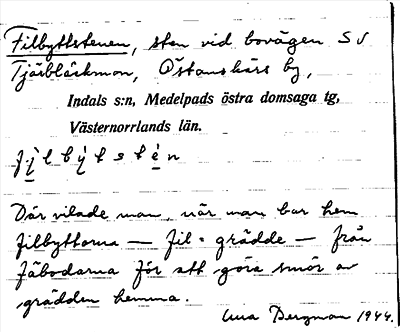 Filbyttstenen, sten vid bovägen SV
Tjärbläckmon, Östanskärs by,
Indals s:n, Medelpads östra domsaga tg,
Västernorrlands län.
fi̱l by̱tstḙ́n
Där vilade man, när man bar hem
filbyttorna — fil = grädde — från
fäbodarna för att göra smör av
grädden hemma.
Bergman 1944.